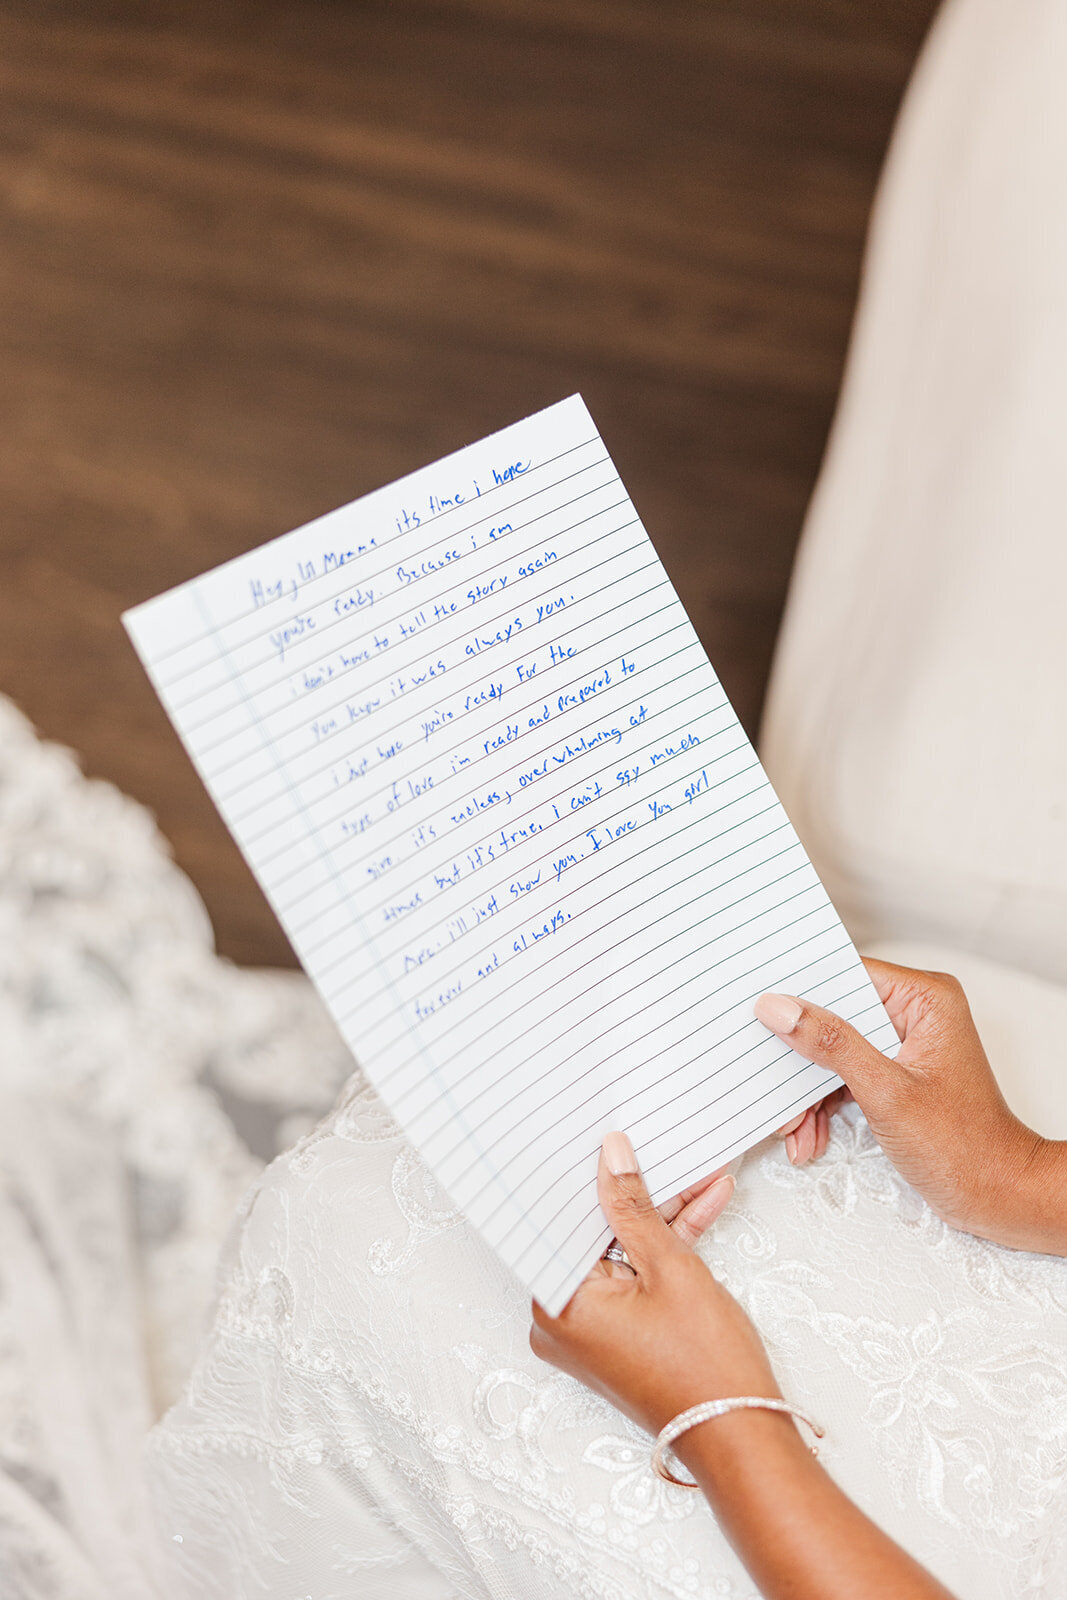 Hey, lil Mamma its time i hope
you're ready. Because i am
i don't have to tell the story again
you know it was always you.
i just hope you're ready For the
type of love i'm ready and prepared to
give. it's endless, over whelming at
times but it's true. i can't say much
more. i'll just show you. I love you girl
forever and always.